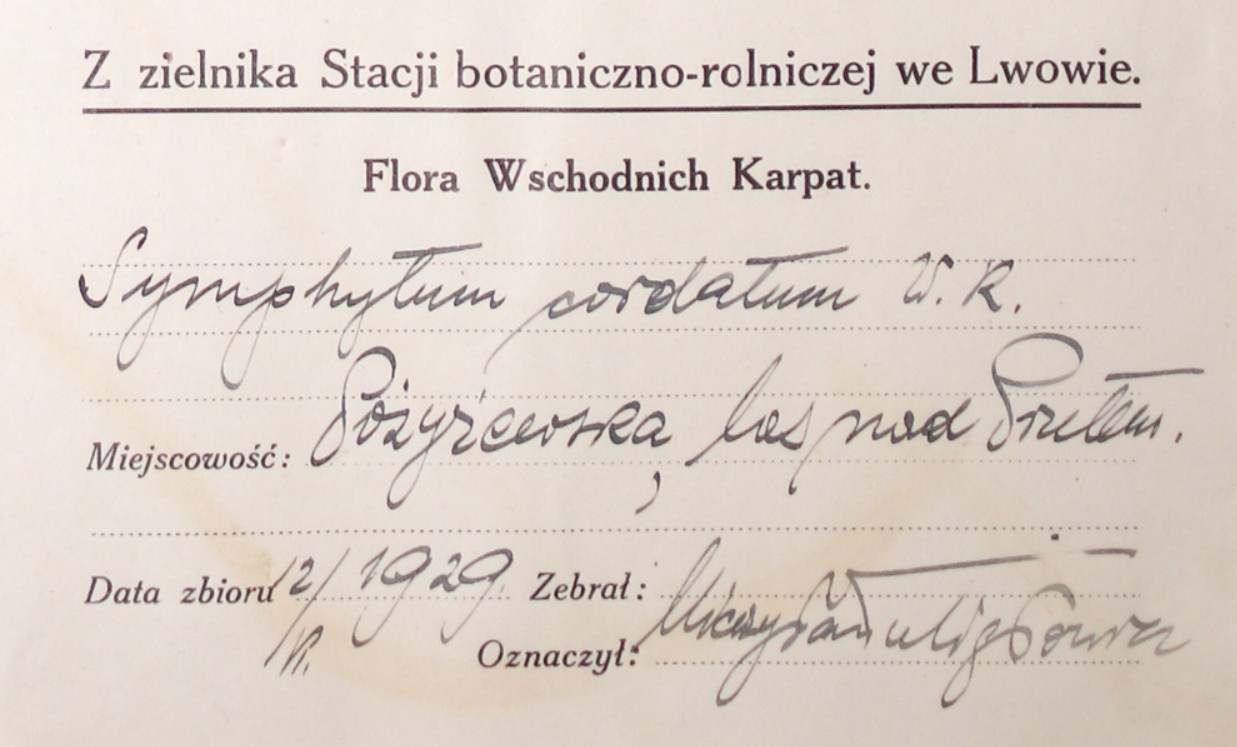 Z zielnika Stacji botaniczno-rolniczej we Lwowie.
Flora Wschodnich Karpat.
Symphytum cordatum W. K.
Miejscowość: Pożyżewska, las nad Prutem.
Data zbioru 12/VI. 1929 Zebrał:
Oznaczył: